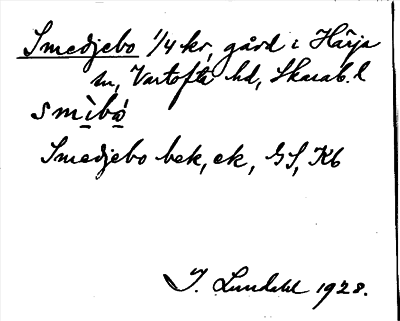 Smedjebo 1/4 kr, gård i Härja
sn, Vartofta hd, Skarab. l
smìbó
Smedjebo bek, ek, GS, Kb
I. Lundahl 1928.